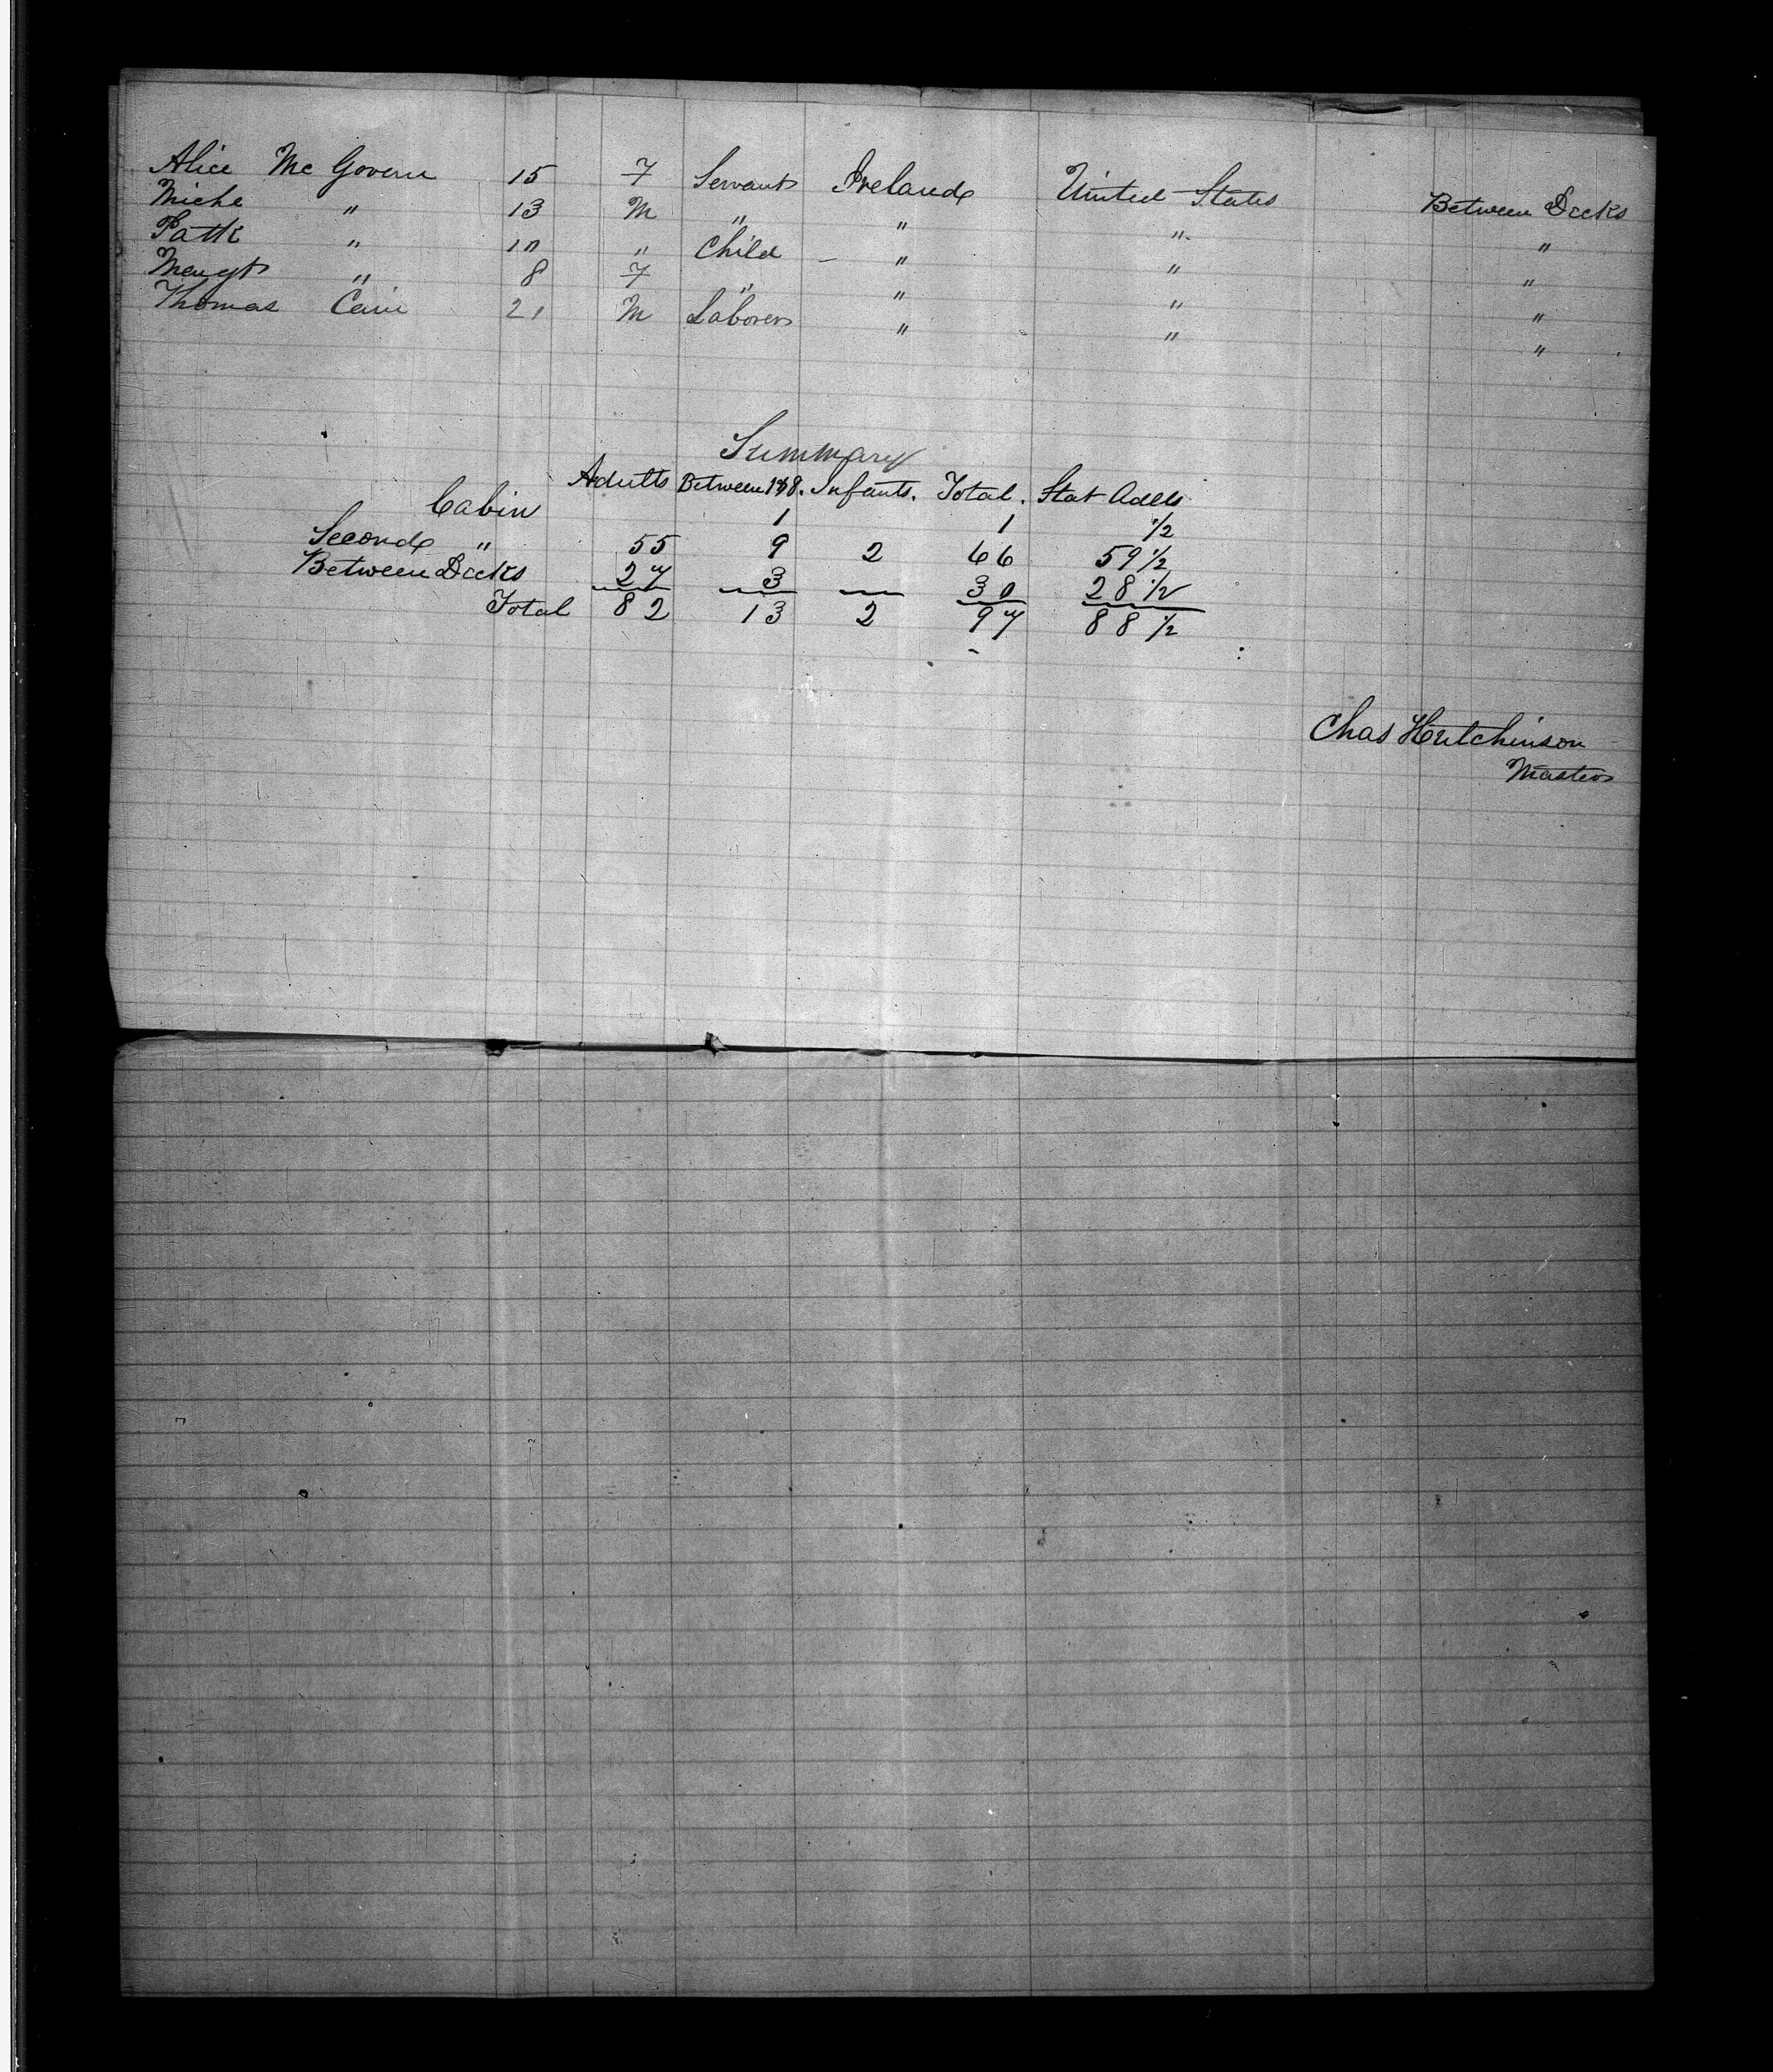 Alice Mc Govern 15 F Servant Ireland United States Between Decks
Miche " 13 M " " " "
Patk " 10 " Child - " " "
Margt " 8 F " " " "
Thomas Cain 21 M Laborer " " "
Summary
Adults Between 1 & 8. Infants. Total. Stat Adlls
Cabin 1 1 1/2
Second " 55 9 2 66 59 1/2
Between Decks 27 3 — 30 28 1/2
Total 82 13 2 97 88 1/2
Chas Hutchinson
Master